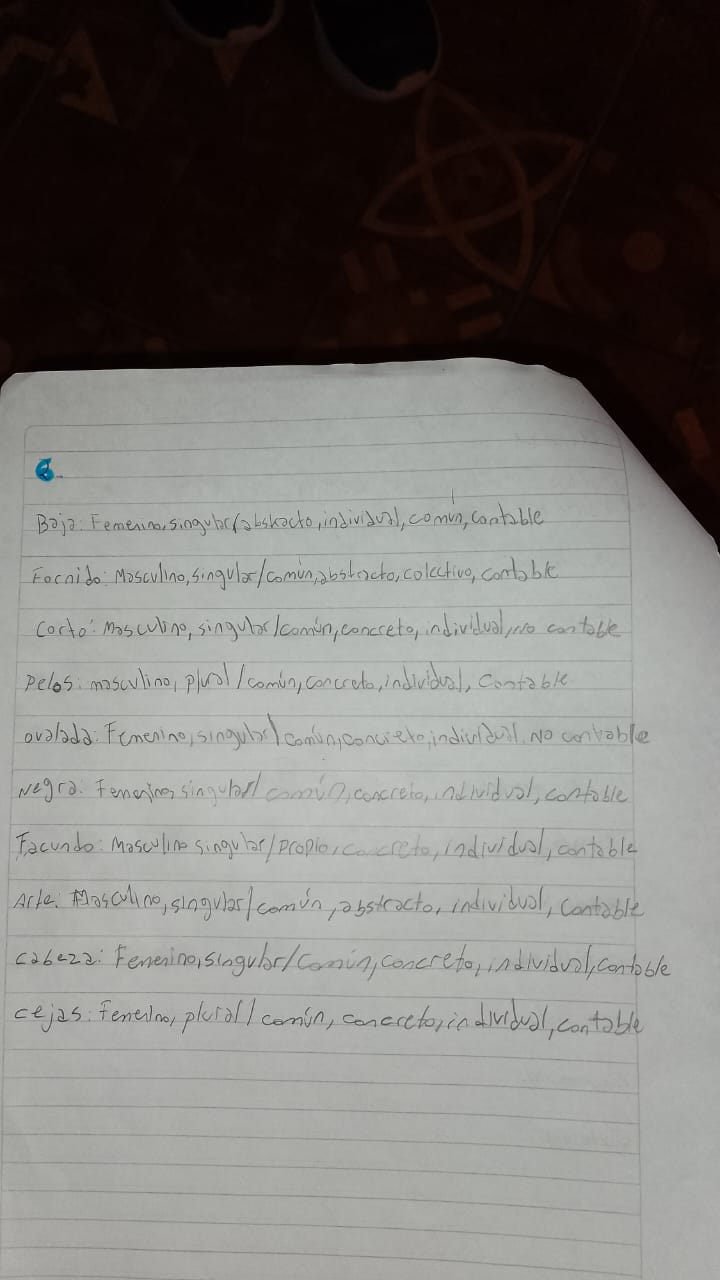 6.
Baja: Femenino, singular/abstracto, individual, común, contable
Fornido: Masculino, singular/común, abstracto, colectivo, contable
Corto: Masculino, singular/común, concreto, individual, no contable
Pelos: masculino, plural/común, concreto, individual, contable
ovalada: Femenino, singular/común, concreto, individual. No contable
Negra: Femenino, singular/común, concreto, individual, contable
Facundo: Masculino singular/propio, concreto, individual, contable
Arte: Masculino, singular/común, abstracto, individual, contable
cabeza: Femenino, singular/común, concreto, individual, contable
cejas: Femenino, plural/común, concreto, individual, contable